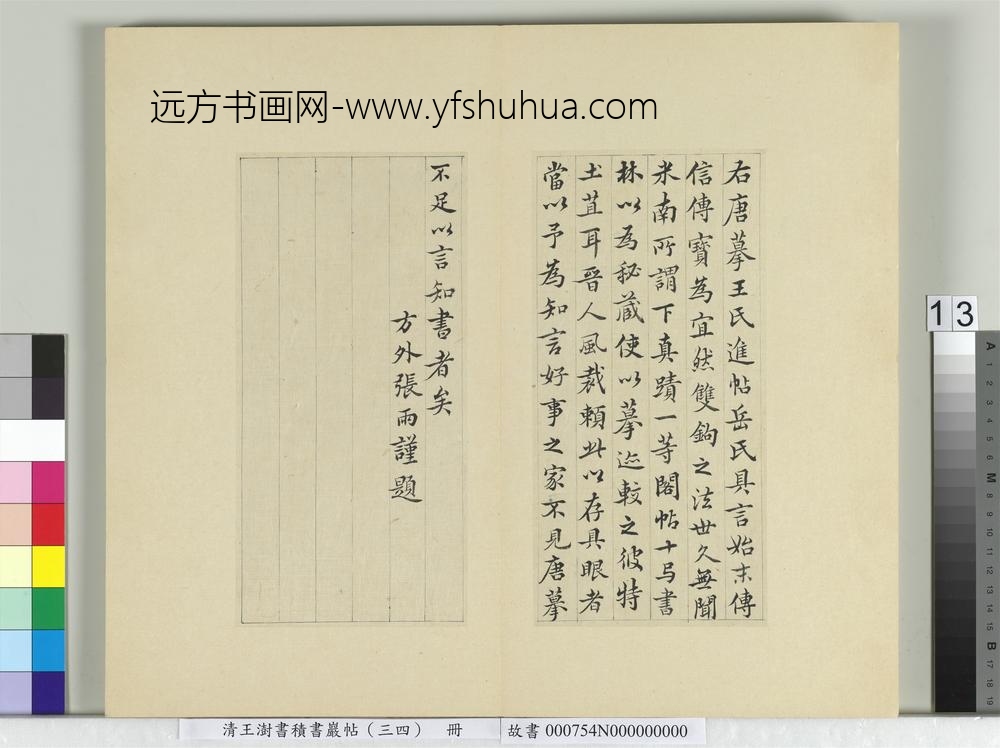 远方书画网-www.yfshuhua.com
右唐摹王氏進帖岳氏具言始末傳
信傳寶為宜然雙鉤之法世久無聞
米南所謂下真蹟一等閣帖十与書
林以為秘藏使以摹迹較之彼特
土苴耳晉人風裁賴此以存具眼者
當以予為知言好事之家不見唐摹
不足以言知書者矣
方外張雨謹題
13
A
1
2
3
4
5
6
M
8
9
10
11
12
13
14
15
B
17
18
19
清王澍書積書巖帖（三四） 冊
故書 000754N000000000